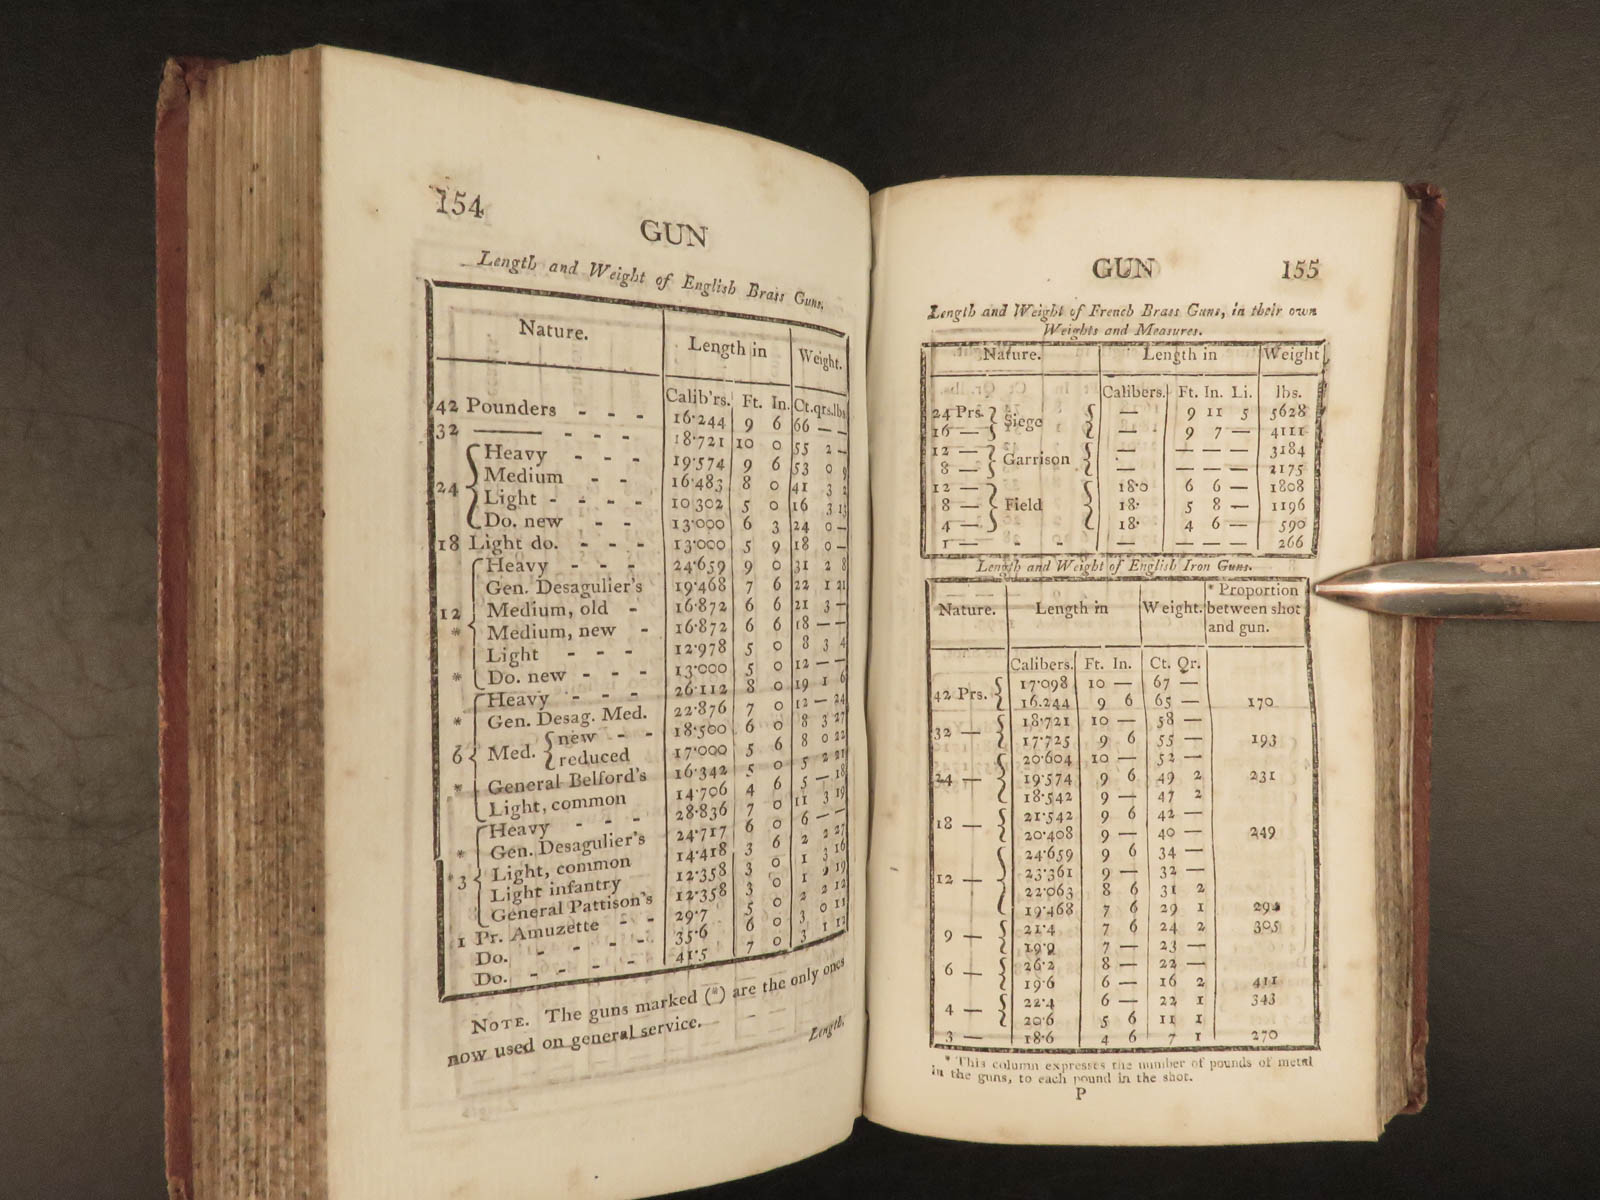 154
GUN
Length and Weight of English Brass Guns.
Nature. Length in Weight.
Calib'rs. Ft. In. Ct. qrs. lbs
42 Pounders - - - 16·244 9 6 66 — —
32 ——— - - - 18·721 10 0 55 2 —
24 { Heavy - - - 19·574 9 6 53 0 9
Medium - - 16·483 8 0 41 3 2
Light - - - - 10 302 5 0 16 3 13
Do. new - - 13·000 6 3 24 0 —
18 Light do. - - - 13·000 5 9 18 0 —
12 { Heavy - - - 24·659 9 0 31 2 8
Gen. Desagulier's 19·468 7 6 22 1 21
Medium, old - 16·872 6 6 21 3 —
* Medium, new - 16·872 6 6 18 — —
Light - - - 12·978 5 0 8 3 4
* Do. new - - - 13·000 5 0 12 — —
6 { Heavy - - - 26·112 8 0 19 1 6
* Gen. Desag. Med. 22·876 7 0 12 — 24
Med. { new - - 18·500 6 0 8 3 27
reduced 17·000 5 6 8 0 22
* General Belford's 16·342 5 0 5 2 21
Light, common 14·706 4 6 5 — 18
3 { Heavy - - - 28·836 7 0 11 3 19
* Gen. Desagulier's 24·717 6 0 6 — —
* Light, common 14·418 3 6 2 2 27
Light infantry 12·358 3 0 1 3 16
General Pattison's 12·358 3 0 1 19
1 Pr. Amuzette - - 29·7 5 0 2 2 12
Do. - - - - 35·6 6 0 3 0 11
Do. - - - - 41·5 7 0 3 1 12
NOTE. The guns marked (*) are the only ones
now used on general service.
Length.
GUN 155
Length and Weight of French Brass Guns, in their own
Weights and Measures.
Nature. Length in Weight
Calibers. Ft. In. Li. lbs.
24 Prs. } Siege { — 9 11 5 5628
16 — — 9 7 — 4111
12 — } Garrison { — — — — 3184
8 — — — — — 2175
12 — } Field { 18·0 6 6 — 1808
8 — 18· 5 8 — 1196
4 — 18· 4 6 — 590
1 — - - — — — — 266
Length and Weight of English Iron Guns.
Nature. Length in Weight. * Proportion
between shot
and gun.
Calibers. Ft. In. Ct. Qr.
42 Prs. { 17·098 10 — 67 —
16.244 9 6 65 — 170
32 — { 18·721 10 — 58 —
17·725 9 6 55 — 193
24 — { 20·604 10 — 52 —
19·574 9 6 49 2 231
18·542 9 — 47 2
18 — { 21·542 9 6 42 —
20·408 9 — 40 — 249
12 — { 24·659 9 6 34 —
23·361 9 — 32 —
22·063 8 6 31 2
19·468 7 6 29 1
9 — { 21·4 7 6 24 2 305
19·9 7 — 23 —
6 — { 26·2 8 — 22 —
19·6 6 — 16 2 411
4 — { 22·4 6 — 22 1 343
20·6 5 6 11 1
3 — 18·6 4 6 7 1 270
* This column expresses the number of pounds of metal
in the guns, to each pound in the shot.
P